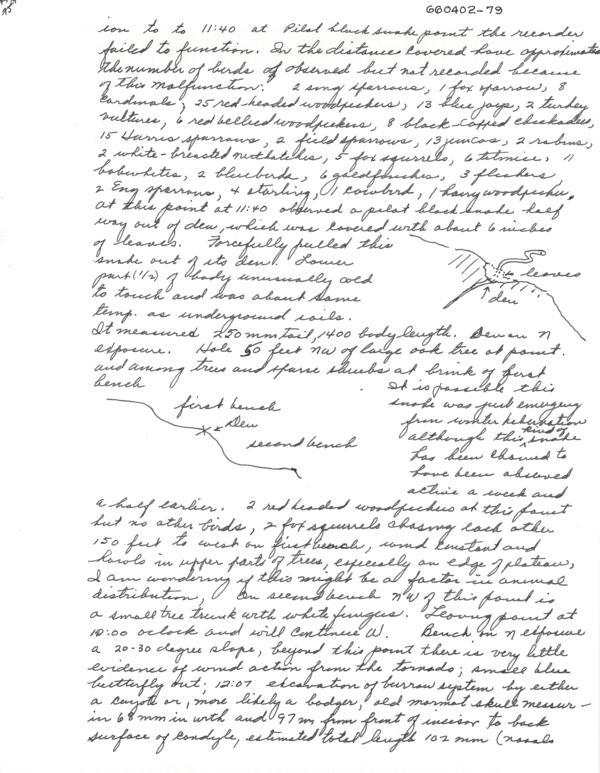 660402-79
ion to to 11:40 at Pilot black snake point the recorder
failed to function. In the distance covered have approximated
the number of birds of observed but not recorded because
of this malfunction. 2 song sparrows, 1 fox sparrow, 8
cardinals, 25 red-headed woodpeckers, 13 blue jays, 2 turkey
vultures, 6 red bellied woodpeckers, 8 black-capped chickadees,
15 Harris sparrows, 2 field sparrows, 13 juncos, 2 robins,
2 white-breasted nuthatches, 5 fox squirrels, 6 titmice, 11
bobwhites, 2 bluebirds, 6 goldfinches, 3 flickers,
2 Eng sparrows, 4 starling, 1 cowbird, 1 hairy woodpecker.
At this point at 11:40 observed a pilot black snake half
way out of den, which was covered with about 6 inches
of leaves. Forcefully pulled this
snake out of its den. Lower
part (1/2) of body unusually cold
to touch and was about same
temp. as underground soils.
leaves
den
It measured 250 mm tail, 1400 body length. Den on N
exposure. Hole 50 feet NW of large oak tree at point.
and among trees and sparse shrubs at brink of first
bench
first bench
Den
second bench
It is possible this
snake was just emerging
from winter hibernation
although this kind of snake
has been claimed to
have been observed
active a week and
a half earlier. 2 red headed woodpeckers at this point
but no other birds, 2 fox squirrels chasing each other
150 feet to west on first bench, wind constant and
howls in upper parts of trees, especially on edge of plateau,
I am wondering if this might be a factor in animal
distribution, On second bench NW of this point is
a small tree trunk with white fungus. Leaving point at
12:00 oclock and will continue W. Bench on N exposure
a 20-30 degree slope, beyond this point there is very little
evidence of wind action from the tornado; small blue
butterfly out; 12:07 excavation of burrow system by either
a coyote or, more likely a badger, old marmot skull measur-
in 68 mm in with and 97 m from front of incisor to back
surface of condyle, estimated total length 102 mm (nasals